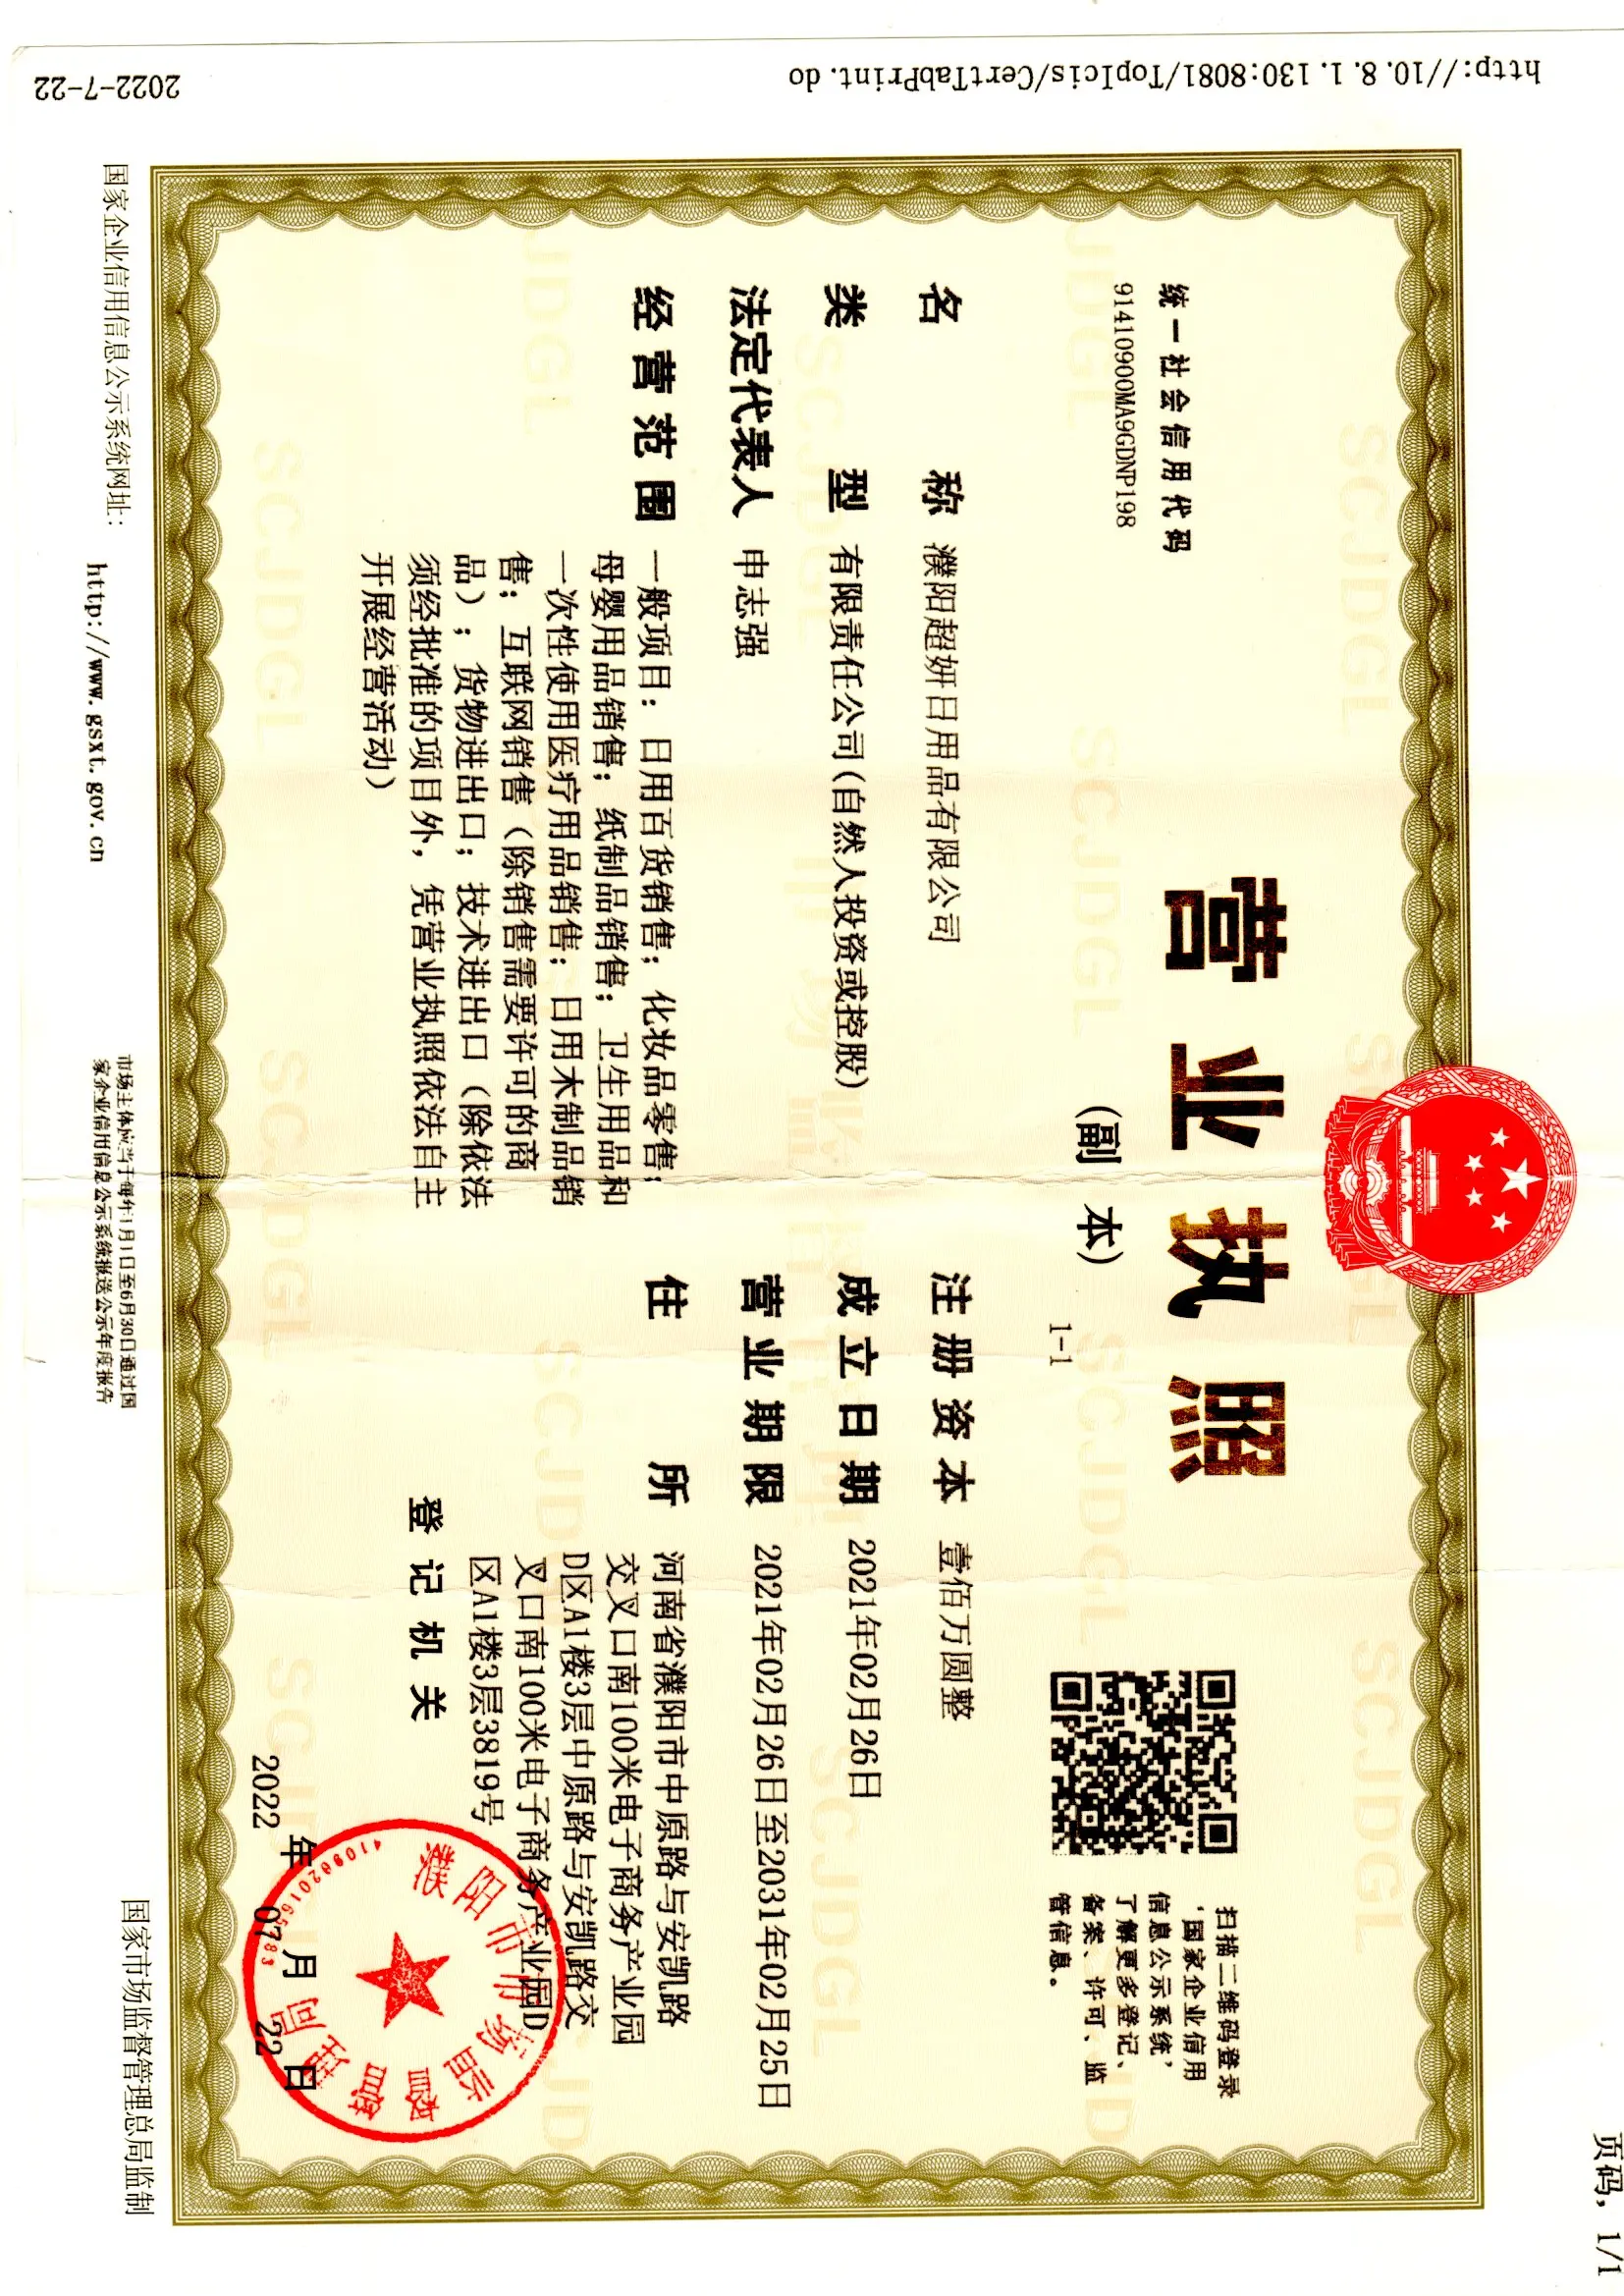 页码，1/1
营业执照
（副 本）
1-1
统一社会信用代码
91410900MA9GDNP198
扫描二维码登录
'国家企业信用
信息公示系统'
了解更多登记、
备案、许可、监
管信息。
名称 濮阳超妍日用品有限公司
类型 有限责任公司(自然人投资或控股)
法定代表人 申志强
经营范围 一般项目：日用百货销售；化妆品零售；
母婴用品销售；纸制品销售；卫生用品和
一次性使用医疗用品销售；日用木制品销
售；互联网销售（除销售需要许可的商
品）；货物进出口；技术进出口（除依法
须经批准的项目外，凭营业执照依法自主
开展经营活动）
注册资本 壹佰万圆整
成立日期 2021年02月26日
营业期限 2021年02月26日至2031年02月25日
住所 河南省濮阳市中原路与安凯路
交叉口南100米电子商务产业园
D区A1楼3层中原路与安凯路交
叉口南100米电子商务产业园D
区A1楼3层3819号
登记机关
濮阳市市场监督管理局
2022年07月22日
国家企业信用信息公示系统网址：
http://www.gsxt.gov.cn
市场主体应当于每年1月1日至6月30日通过国
家企业信用信息公示系统报送公示年度报告
国家市场监督管理总局监制
http://10.8.1.130:8081/TopIcis/CertTabPrint.do
2022-7-22
SCJDGL